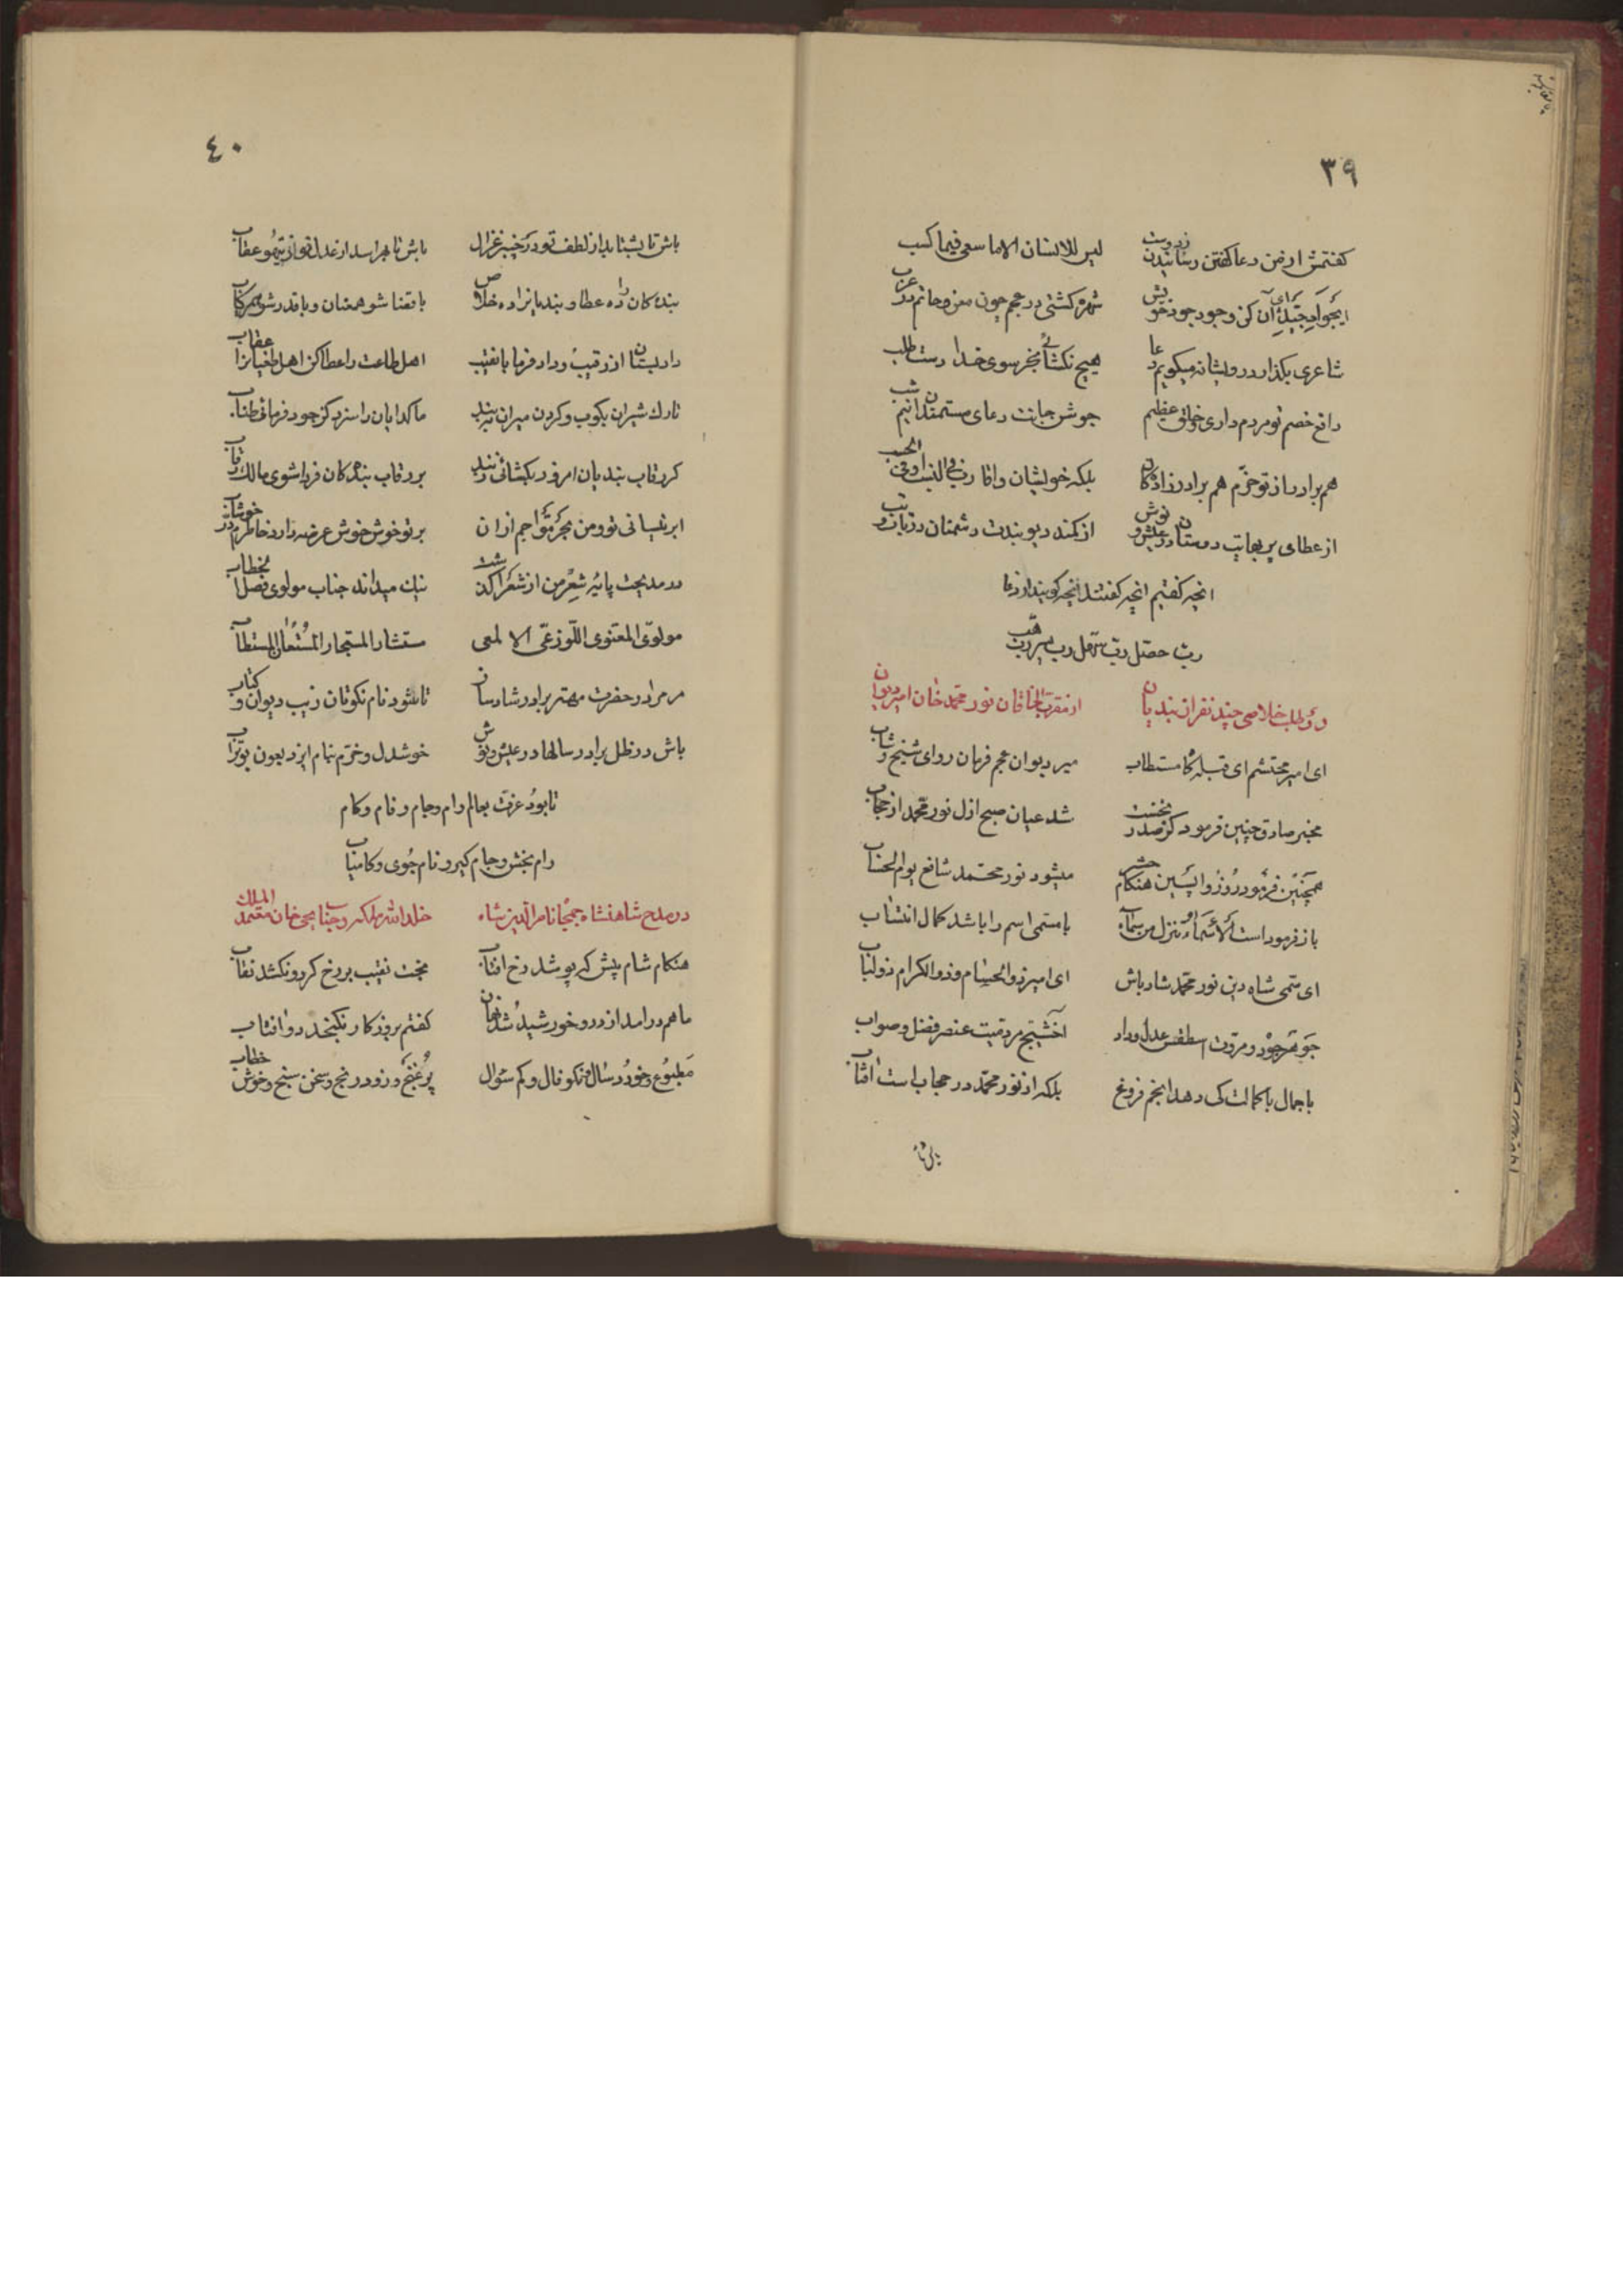 ٣٩
کفتمش از من دعا کفتن رسانیدن زدوست لیس للانسان الاما سعی فیما کسب
شهره کشتی در عجم چون معن و حاتم در عرب
شاعری بکذار درویشانه میکویم دعا هیچ نکشائی بجز سوی خدا دست طلب
دافع خصم تو مردم داری و خلق عظیم جوشن جانت دعای مستمندان نیم شب
هم برادر از تو خرّم هم برادرزادکان بلکه خویشان و اقارب فی النسب او فی الحسب
از عطای بی دوستان در عیش و نوش از کمند دیو بندت دشمنان در تاب و تب
انچه کفتیم انچه کفتند انچه کویند از دعا
رب حصّل رب سهّل رب یسّر رب هب
در طلب خلاصی چند نفر از بندیان از مقرب الخاقان نور محمّد خان امیر دیوان
ای امیر محتشم ای قبله کامستطاب میر دیوان عجم فرمان روای شیخ و شاب
مخبر صادق چنین فرمود کز صدر نخست شد عیان صبح ازل نور محمّد از حجاب
همچنین فرمود در روز واپسین هنکام حشر میشود نور محتمد شافع یوم الحساب
باز فرمود است الأسماء تنزل من سماء با مسمی اسم را باشد کمال انتساب
ای سمّی شاه دین نور محمّد شاد باش ای امیر ذوالحشام و ذوالکرام ذولباب
جوهر جود و مروت اسطقس عدل و داد آخشیج مردمیت عنصر فضل و صواب
با جمال با کمالت کی دهد انجم فروغ بلکه از نور محمّد در حجاب است افتاب
باش تا
٤٠
باش تا بشتابد از لطف تو در غزال باش تا بهراسد از عدل تو از تیهو عقاب
بندکان را ده عطا و بندیانرا ده خلاص با قضا شو همعنان و با قدر شو همرکاب
داد بستان از رقیب و داد فرما با نقیب اهل طاعت را عطا کن اهل طغیانرا عقاب
تارک شیران بکوب و کردن میران ببند ما کدایان را سزد کز جود فرمائی طناب
کر رقاب بندیان امروز بکشائی ز بند بر رقاب بندکان فردا شوی مالک رقاب
ابر نیسانی تو و من بحر موّاجم ازان بر تو خوش خوش عرضه دارد خاطرم درّ خوشاب
در مدیحت پایه شعر من از شعرا کذشت نیک میداند جناب مولوی فصل الخطاب
مولوی المعنوی اللّوذعی الالمعی مستشار المستجار المستعان المستطاب
مر مرا در حضرت مهتر برادر شاد سان تا شود نام نکوتان زیب دیوان و کتاب
باش در ظل برادر سالها در عیش و نوش خوشدل و خرّم بنام ایزد بعون بوتراب
تا بود عزت بعالم رام و جام و نام و کام
رام بخش و جام کیر و نام جوی و کامیاب
در مدح شاهنشاه جمجاه ناصرالدین شاه خلد الله ملکه و جناب یحیی خان معتمد الملک
هنکام شام پیش که پوشد رخ افتاب بخت نقیب بر رخ کردون کشد نقاب
ماهم در امد از در و خورشید شد نهان کفتم بروزکار نکنجد دو افتاب
مطبوع و خورد سال و نکو فال و کم سئوال پر غنج و زود رنج و سخن سنج و خوش خطاب